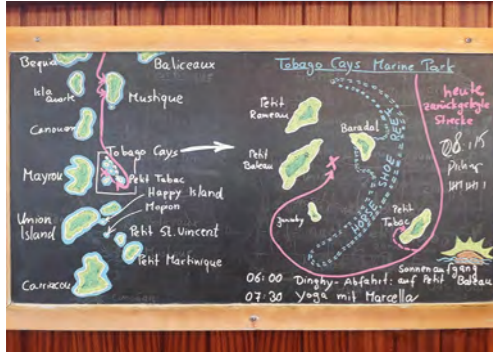 Bequa
Baliceaux
Isla
quatre
Mustique
Canouan
Tobago Cays
Mayrou
Petit Tabac
Happy Island
Mopion
Union
Island
Petit St. Vincent
Petit Martinique
Carriacou
Tobago Cays Marine Park
heute
zurückgelegte
Strecke
Petit
Rameau
Baradal
Petit
Bateau
HORSE SHOE REEF
Jamesby
Petit
Tabac
Sonnenaufgang
06:00 Dinghy-Abfahrt: auf Petit Bateau
07:30 Yoga mit Marcella